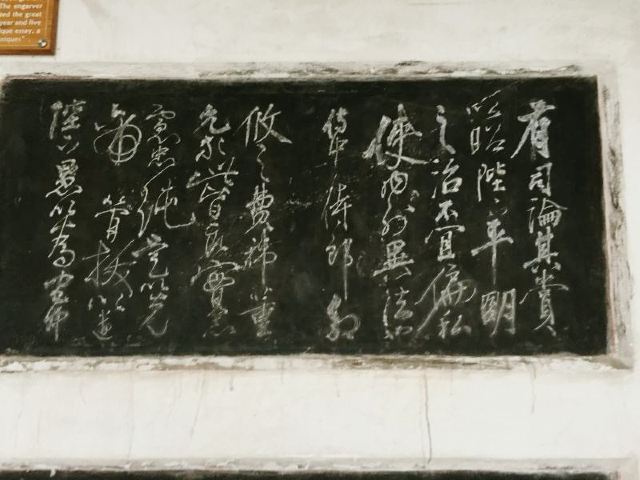 The engarver
ted the great
year and five
ique essay, a
niques"
有司論其賞
以昭陛下平明
之治不宜偏私
使內外異法也
侍中侍郎郭
攸之費禕董
允等此皆良實志
慮忠純是以先
帝簡拔以遺
陛下愚以為宮中